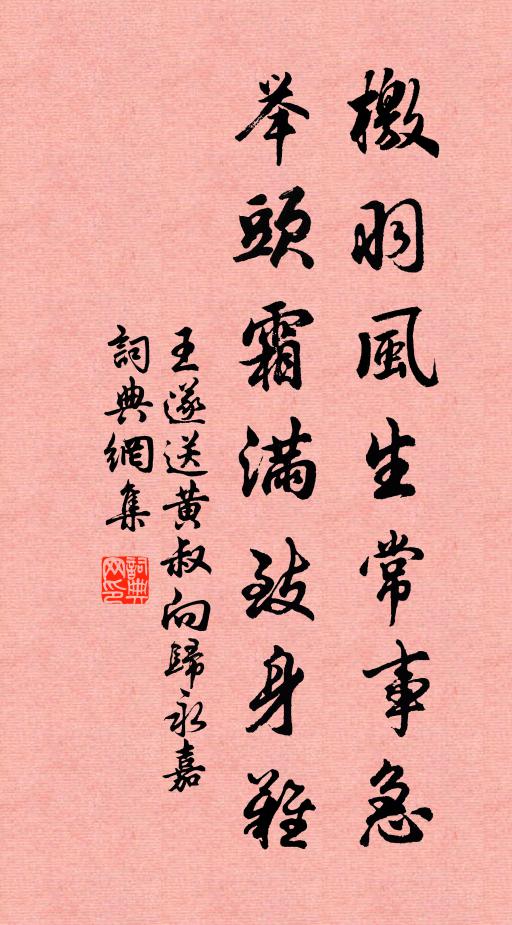 檄羽風生常事急
举頭霜满致身難
王遂送黄叔向歸永嘉
詞典網集
詞典網印